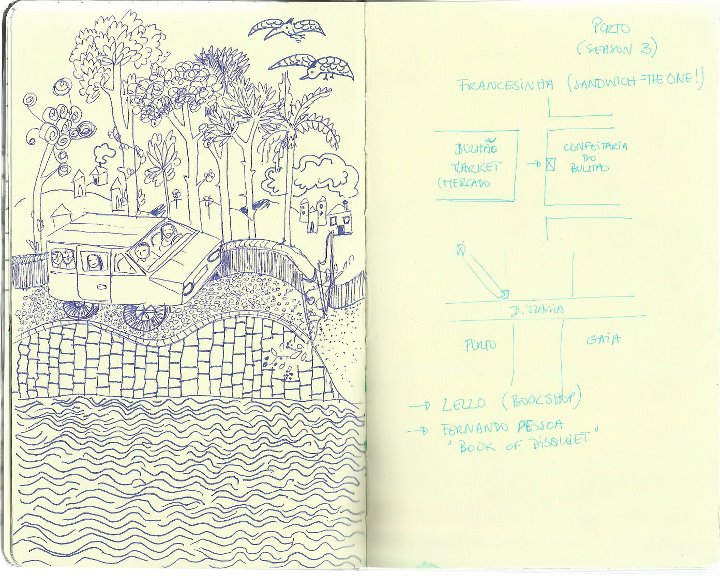 PORTO
(SEASON 3)
FRANCESINHA (SANDWICH-THE ONE!)
BULHÃO
MARKET
(MERCADO
CONFEITARIA
DO
BULHÃO
D. MARIA
PORTO
GAIA
LELLO (BOOKSHOP)
FERNANDO PESSOA
"BOOK OF DISQUIET"